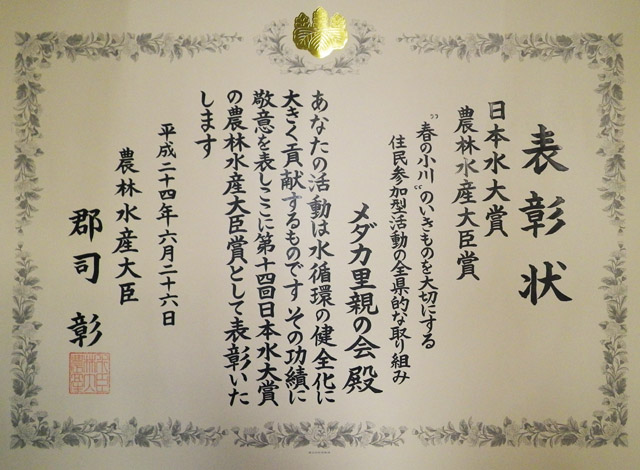 表彰状
日本水大賞
農林水産大臣賞
”春の小川“のいきものを大切にする
住民参加型活動の全県的な取り組み
メダカ里親の会 殿
あなたの活動は水循環の健全化に
大きく貢献するものです その功績に
敬意を表しここに第十四回日本水大賞
の農林水産大臣賞として表彰いた
します
平成二十四年六月二十六日
農林水産大臣
郡司 彰